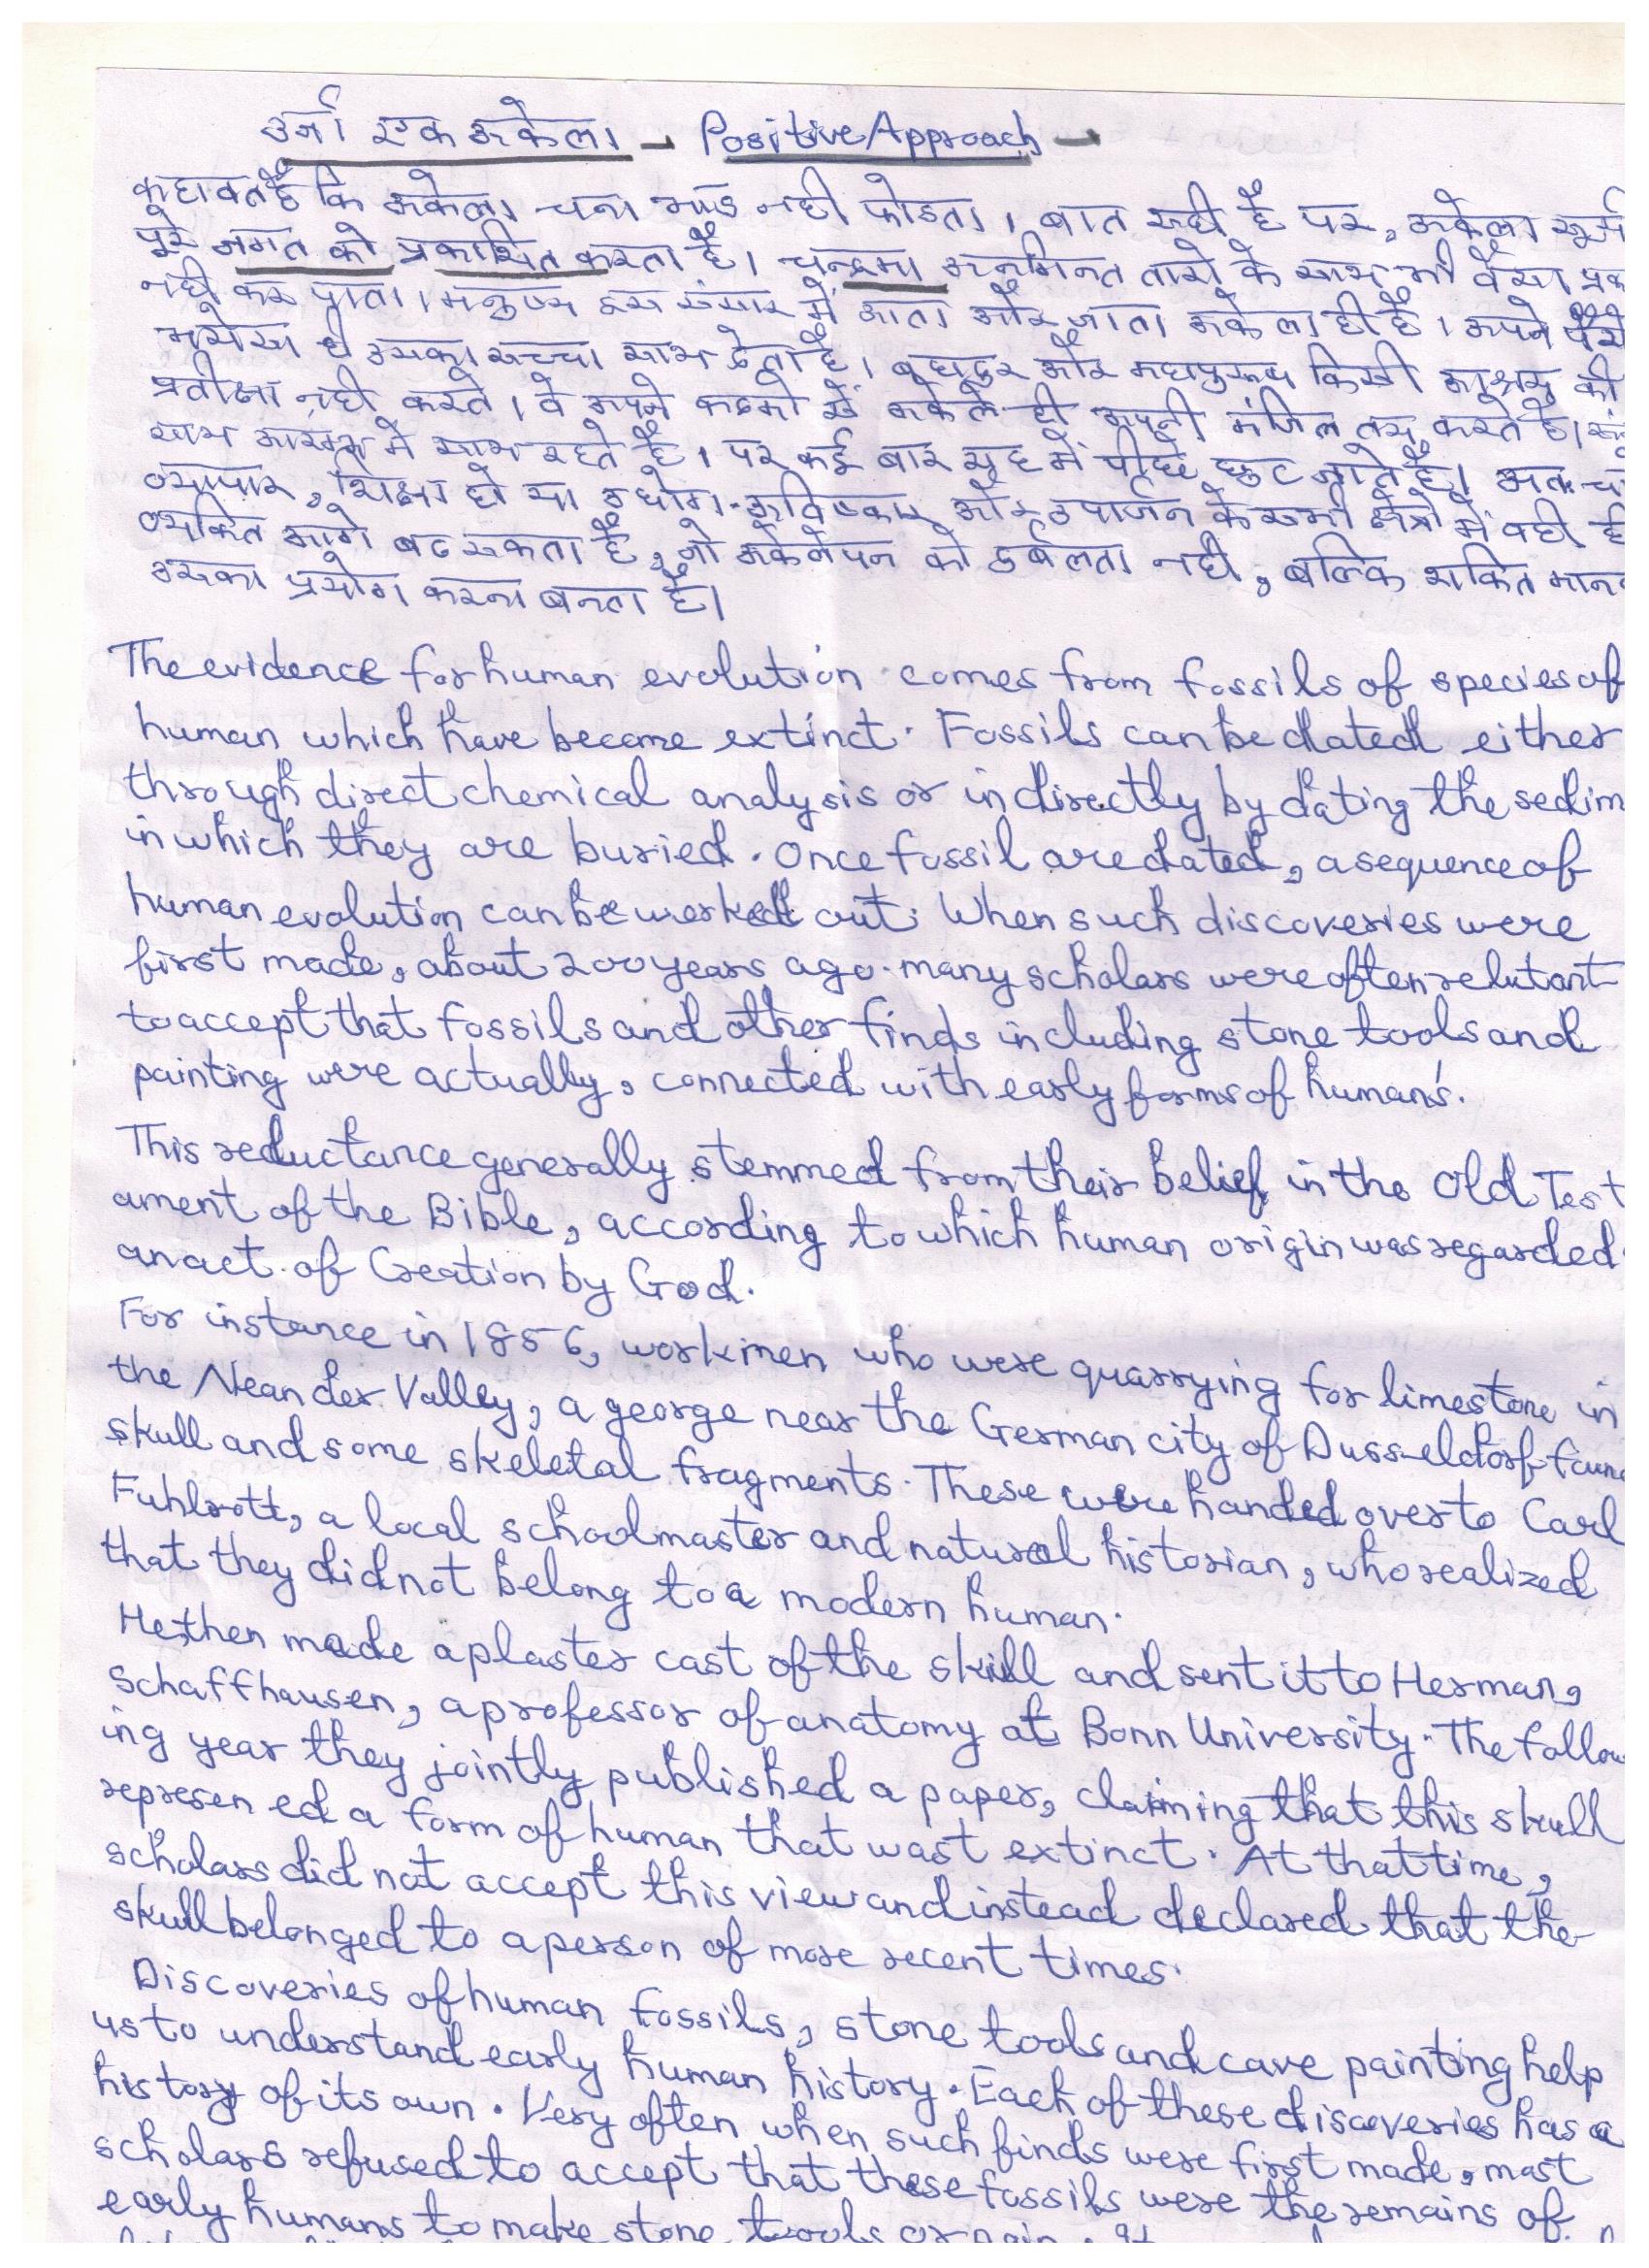 ऊर्जा एक अकेला - Positive Approach -
कहावत है कि अकेला चना भाड नही फोडता। बात सही है पर, अकेला सूर्य
पूरे जगत को प्रकाशित करता है। चन्द्रमा अनगिनत तारो के साथ भी वैसा प्रक
नही कर पाता। मनुष्य इस संसार में आता और जाता अकेला ही है। अपने पैरो
भरोसा ही उसका सच्चा साथ देता है। बहादुर और महापुरूष किसी आश्रय की
प्रतीक्षा नही करते। वे अपने कदमो से अकेले ही अपनी मंजिल तय करते है।
साथ आरम्भ में साथ रहते है। पर कई बार युद्ध में पीछे छूट जाते है। अतः
व्यापार, शिक्षा हो या उधोग-अविष्कार और उपार्जन के सभी क्षेत्रो में वही ही
व्यक्ति आगे बढ सकता है, जो अकेलेपन को दुर्बलता नही, बल्कि शक्ति मान
उसका प्रयोग करना बनता है।
The evidence for human evolution comes from fossils of species of
human which have become extinct. Fossils can be dated either
through direct chemical analysis or indirectly by dating the sedim
in which they are buried. Once fossil are dated, a sequence of
human evolution can be worked out. When such discoveries were
first made, about 200 years ago. many scholars were often relutant
to accept that fossils and other finds including stone tools and
painting were actually, connected with early forms of human's.
This reductance generally stemmed from their belief in the Old Test
ament of the Bible, according to which human origin was regarded
an act of Creation by God.
For instance in 1856, workmen who were quarrying for limestone in
the Neander Valley, a george near the German city of Dusseldorf found
skull and some skeletal fragments. These were handed over to Carl
Fuhlrott, a local schoolmaster and natural historian, who realized
that they did not belong to a modern human.
He then made a plaster cast of the skull and sent it to Herman,
Schaffhausen, a professor of anatomy at Bonn University. The follow
ing year they jointly published a paper, claiming that this skull
represen ed a form of human that wast extinct. At that time,
scholars did not accept this view and instead declared that the
skull belonged to a person of more recent times.
Discoveries of human fossils, stone tools and cave painting help
us to understand early human history. Each of these discoveries has a
history of its own. Very often when such finds were first made, most
scholars refused to accept that these fossils were the remains of
early humans to make stone tools or pain